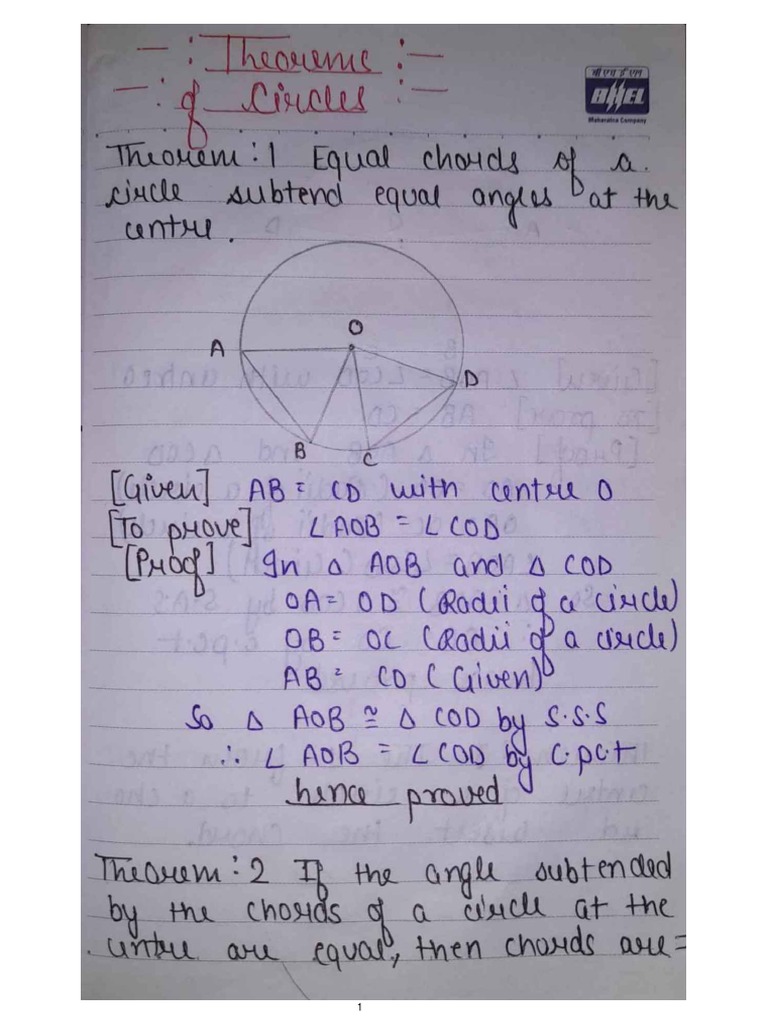 — : Theorems : —
— : of Circles : —
बी एच ई एल
BHEL
Maharatna Company
Theorem : 1 Equal chords of a
circle subtend equal angles at the
centre.
O
A
D
B
C
[Given] AB = CD with centre O
[To prove] ∠AOB = ∠COD
[Proof] In △ AOB and △ COD
OA = OD (Radii of a circle)
OB = OC (Radii of a circle)
AB = CD (Given)
So △ AOB ≅ △ COD by S.S.S
∴ ∠ AOB = ∠ COD by C.p.c.t
hence proved
Theorem : 2 If the angle subtended
by the chords of a circle at the
centre are equal, then chords are =
1